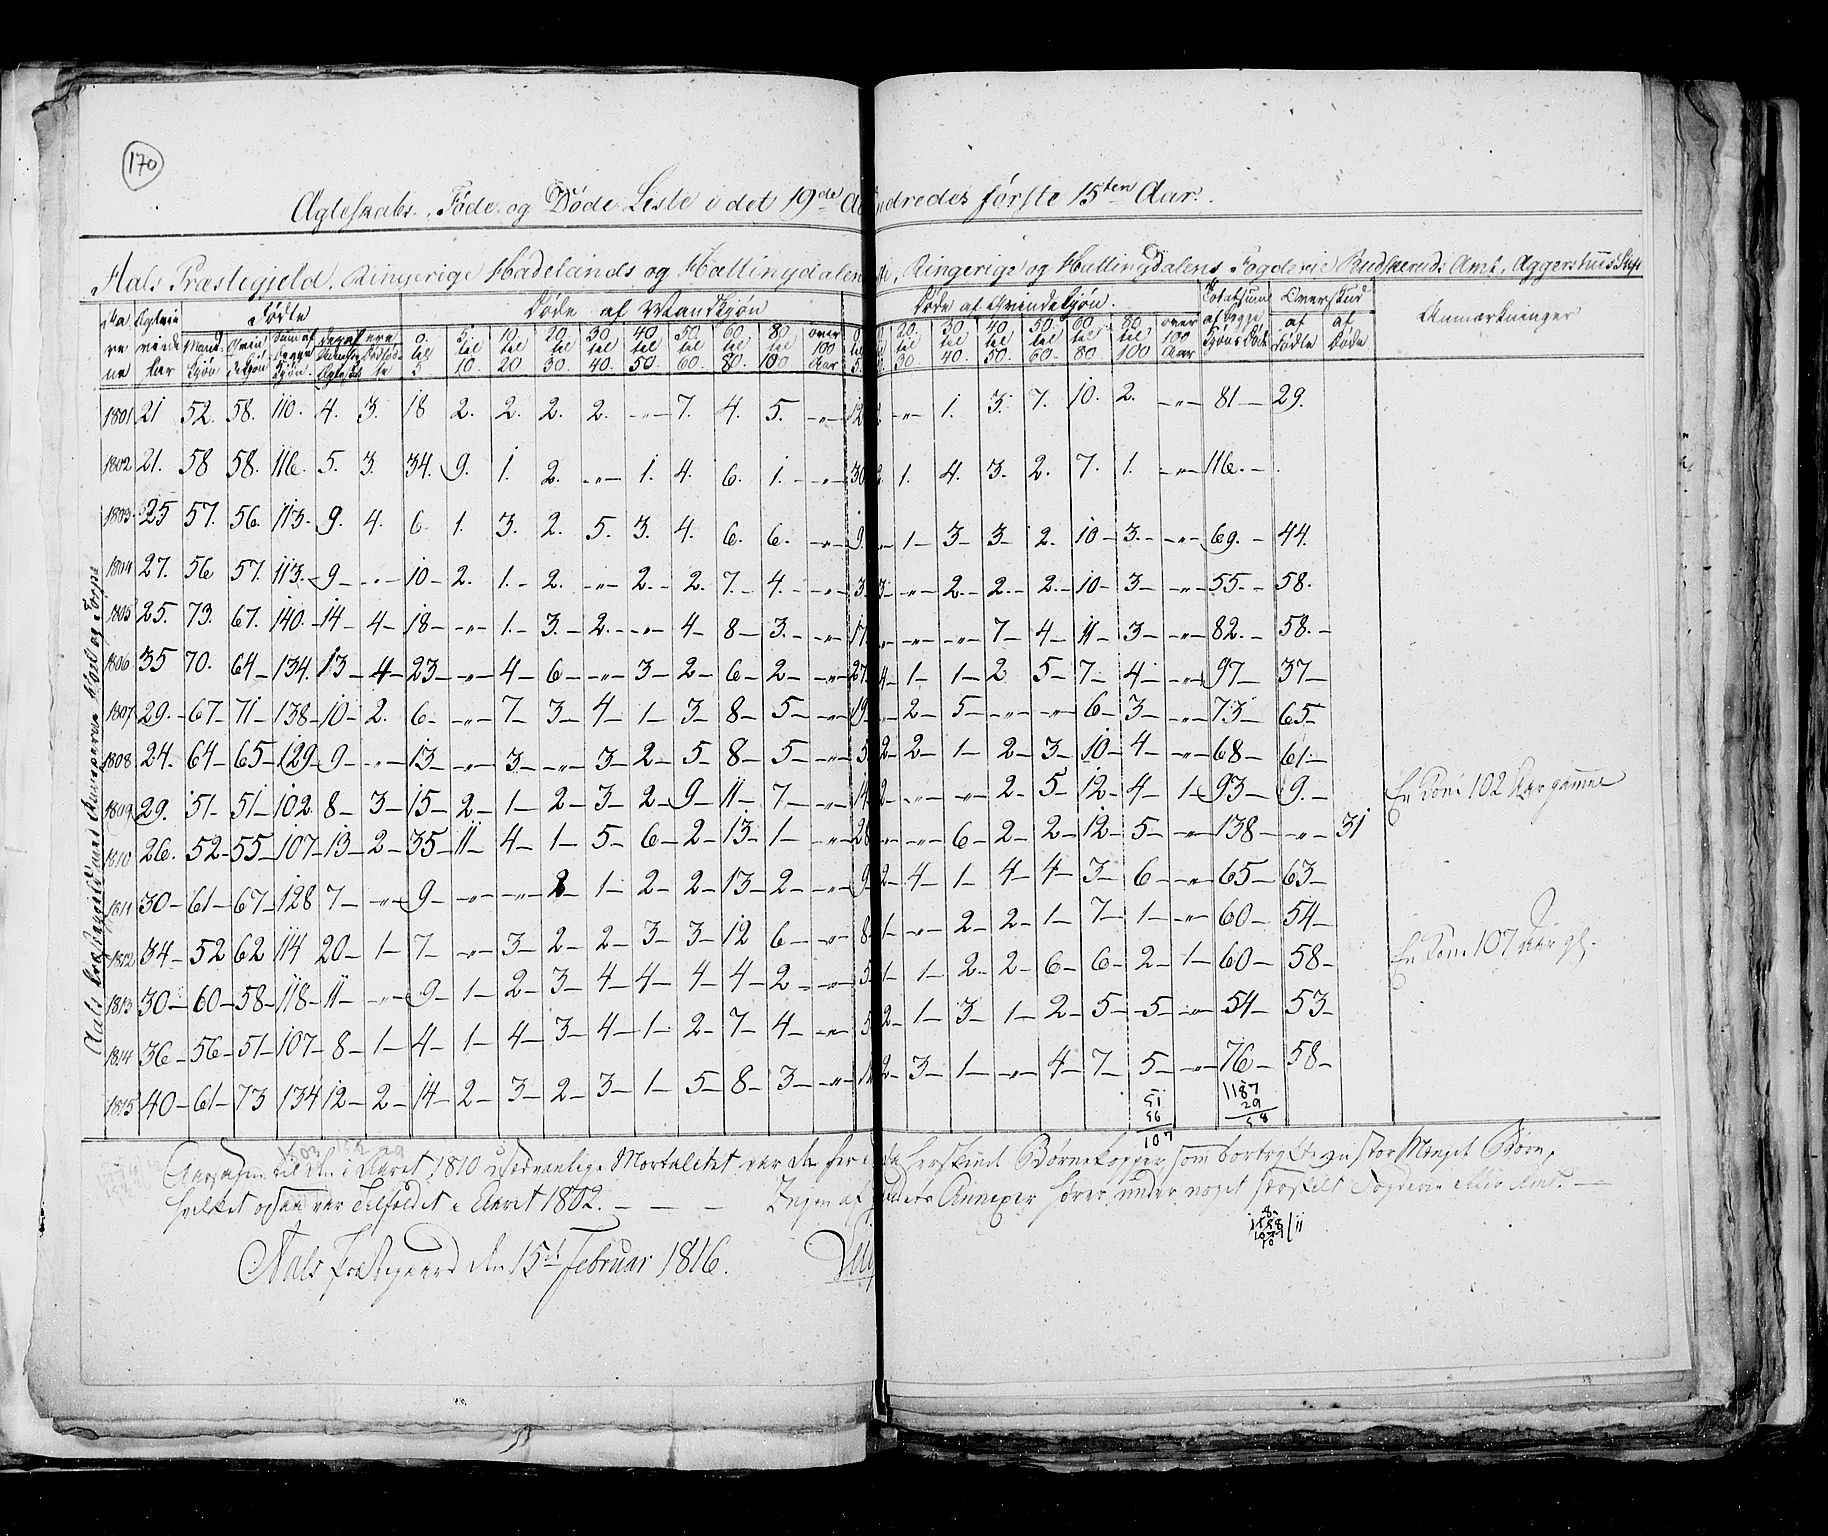 170
Ægteskabs, Føde og Døde Liste i det 19de ndredes første 15ten Aar.
Aals Præstegjeld, Ringerige Hadelands og Hallingdalens Ringerige og Hallingdalens Fogderie Buskeruds Amt, Aggershuus Stift
Aarene Ægteviede Par Fødte Døde af Mandkjøn Døde af Qvindekjøn. Totalsum af begge Kjøns Døde Overskud Anmærkninger
Mandkjøn Qvindekjøn Sum af begge Kjøn deraf ere 0 til 5 5 til 10 10 til 20 20 til 30. 30 til 40. 40 til 50. 50 til 60. 60 til 80. 80 til 100 over 100 Aar 0 til 5. 20. til 30. 30 til 40. 40 til 50. 50. til 60. 60 til 80 80 til 100 over 100 Aar af Fødte af Døde
1801 21 52. 58. 110. 4. 3. 18 2. 2. 2. 2. -"- 7. 4. 5. -"- 12 2. -"- 1. 3. 7. 10. 2. -"- 81 29.
1802 21. 58 58. 116. 5. 3. 34. 9. 1. 2. -"- 1. 4. 6. 1. -"- 30 2. 1. 4. 3. 2. 7. 1. -"- 116.
1803 25 57. 56. 113. 9. 4. 6. 1. 3. 2. 5. 3. 4. 6. 6. -"- 9. -"- 1 3 3 2. 10 3. -"- 69. 44.
1804 27. 56 57. 113. 9 -"- 10 2. 1 2. -"- 2. 2. 7. 4. -"- 3 3 -"- 2. 2. 2 10 3 -"- 55. 58.
1805 25. 73. 67. 140. 14 4 18 -"- 1. 3. 2. -"- 4 8 3. -"- 17 -"- -"- -"- 7 4 11 3 -"- 82. 58.
1806 35 70. 64 134. 13 4 23 -"- 4 6 -"- 3 2 6 2 -"- 27 4 1 1 2 5 7 4 -"- 97 37
1807 29. 67 71 138 10 2. 6 -"- 7 3 4 1 3 8 5 -"- 19 -"- 2 5 -"- -"- 6 3 -"- 73 65
1808 24. 64 65 129 9 -"- 13 -"- 3 -"- 3 2 5 8 5 -"- 5 2 2 1 2 3 10 4 -"- 68 61
1809 29. 51 51 102 8 3 15 2 1 2 3 2 9 11 7 -"- 14 2 -"- -"- 2 5 12 4 1 93 9. En Kone 102 Aar gammel
1810 26. 52 55 107 13 2 35 11 4 1 5 6 2 13 1 -"- 28 -"- -"- 6 2 2 12 5 -"- 138 -"- 31
1811 30 61 67 128 7 -"- 9 -"- -"- 2 1 2 2 13 2 -"- 9 2 4 1 4 4 3 6 -"- 65 63
1812 34 52 62 114 20 1 7 -"- 3 2 2 3 3 12 6 -"- 8 1 -"- 2 2 1 7 1 -"- 60 54
1813 30 60 58 118 11 -"- 9 1 2 3 4 4 4 4 2 -"- 5 1 1 2 2 6 6 2 1 60 58 En Kone 107 Aar gl.
1814 36 56 51 107 8 1 4 1 4 3 4 1 2 7 4 -"- 5 2 1 3 1 2 5 5 -"- 54 53
1815 40 61 73 134 12 2 14 2 3 2 3 1 5 8 3 -"- 2 3 1 -"- 4 7 5 -"- 76 58
51
56
107
1187
29
58
Aals Præstegjeld med Annexerne Hool og Torpe
Aarsagen til den i Aaret 1810 usædvanlige Mortalitet var de her herskende Børnekopper, som bortrykte en stor Mængde Børn,
hvilket ogsaa var Tilfældet i Aaret 1802. Ingen af Annexer hører under noget særskilt Fogderie eller Amt.
Aals Præstegaard den 15de Februar 1816.